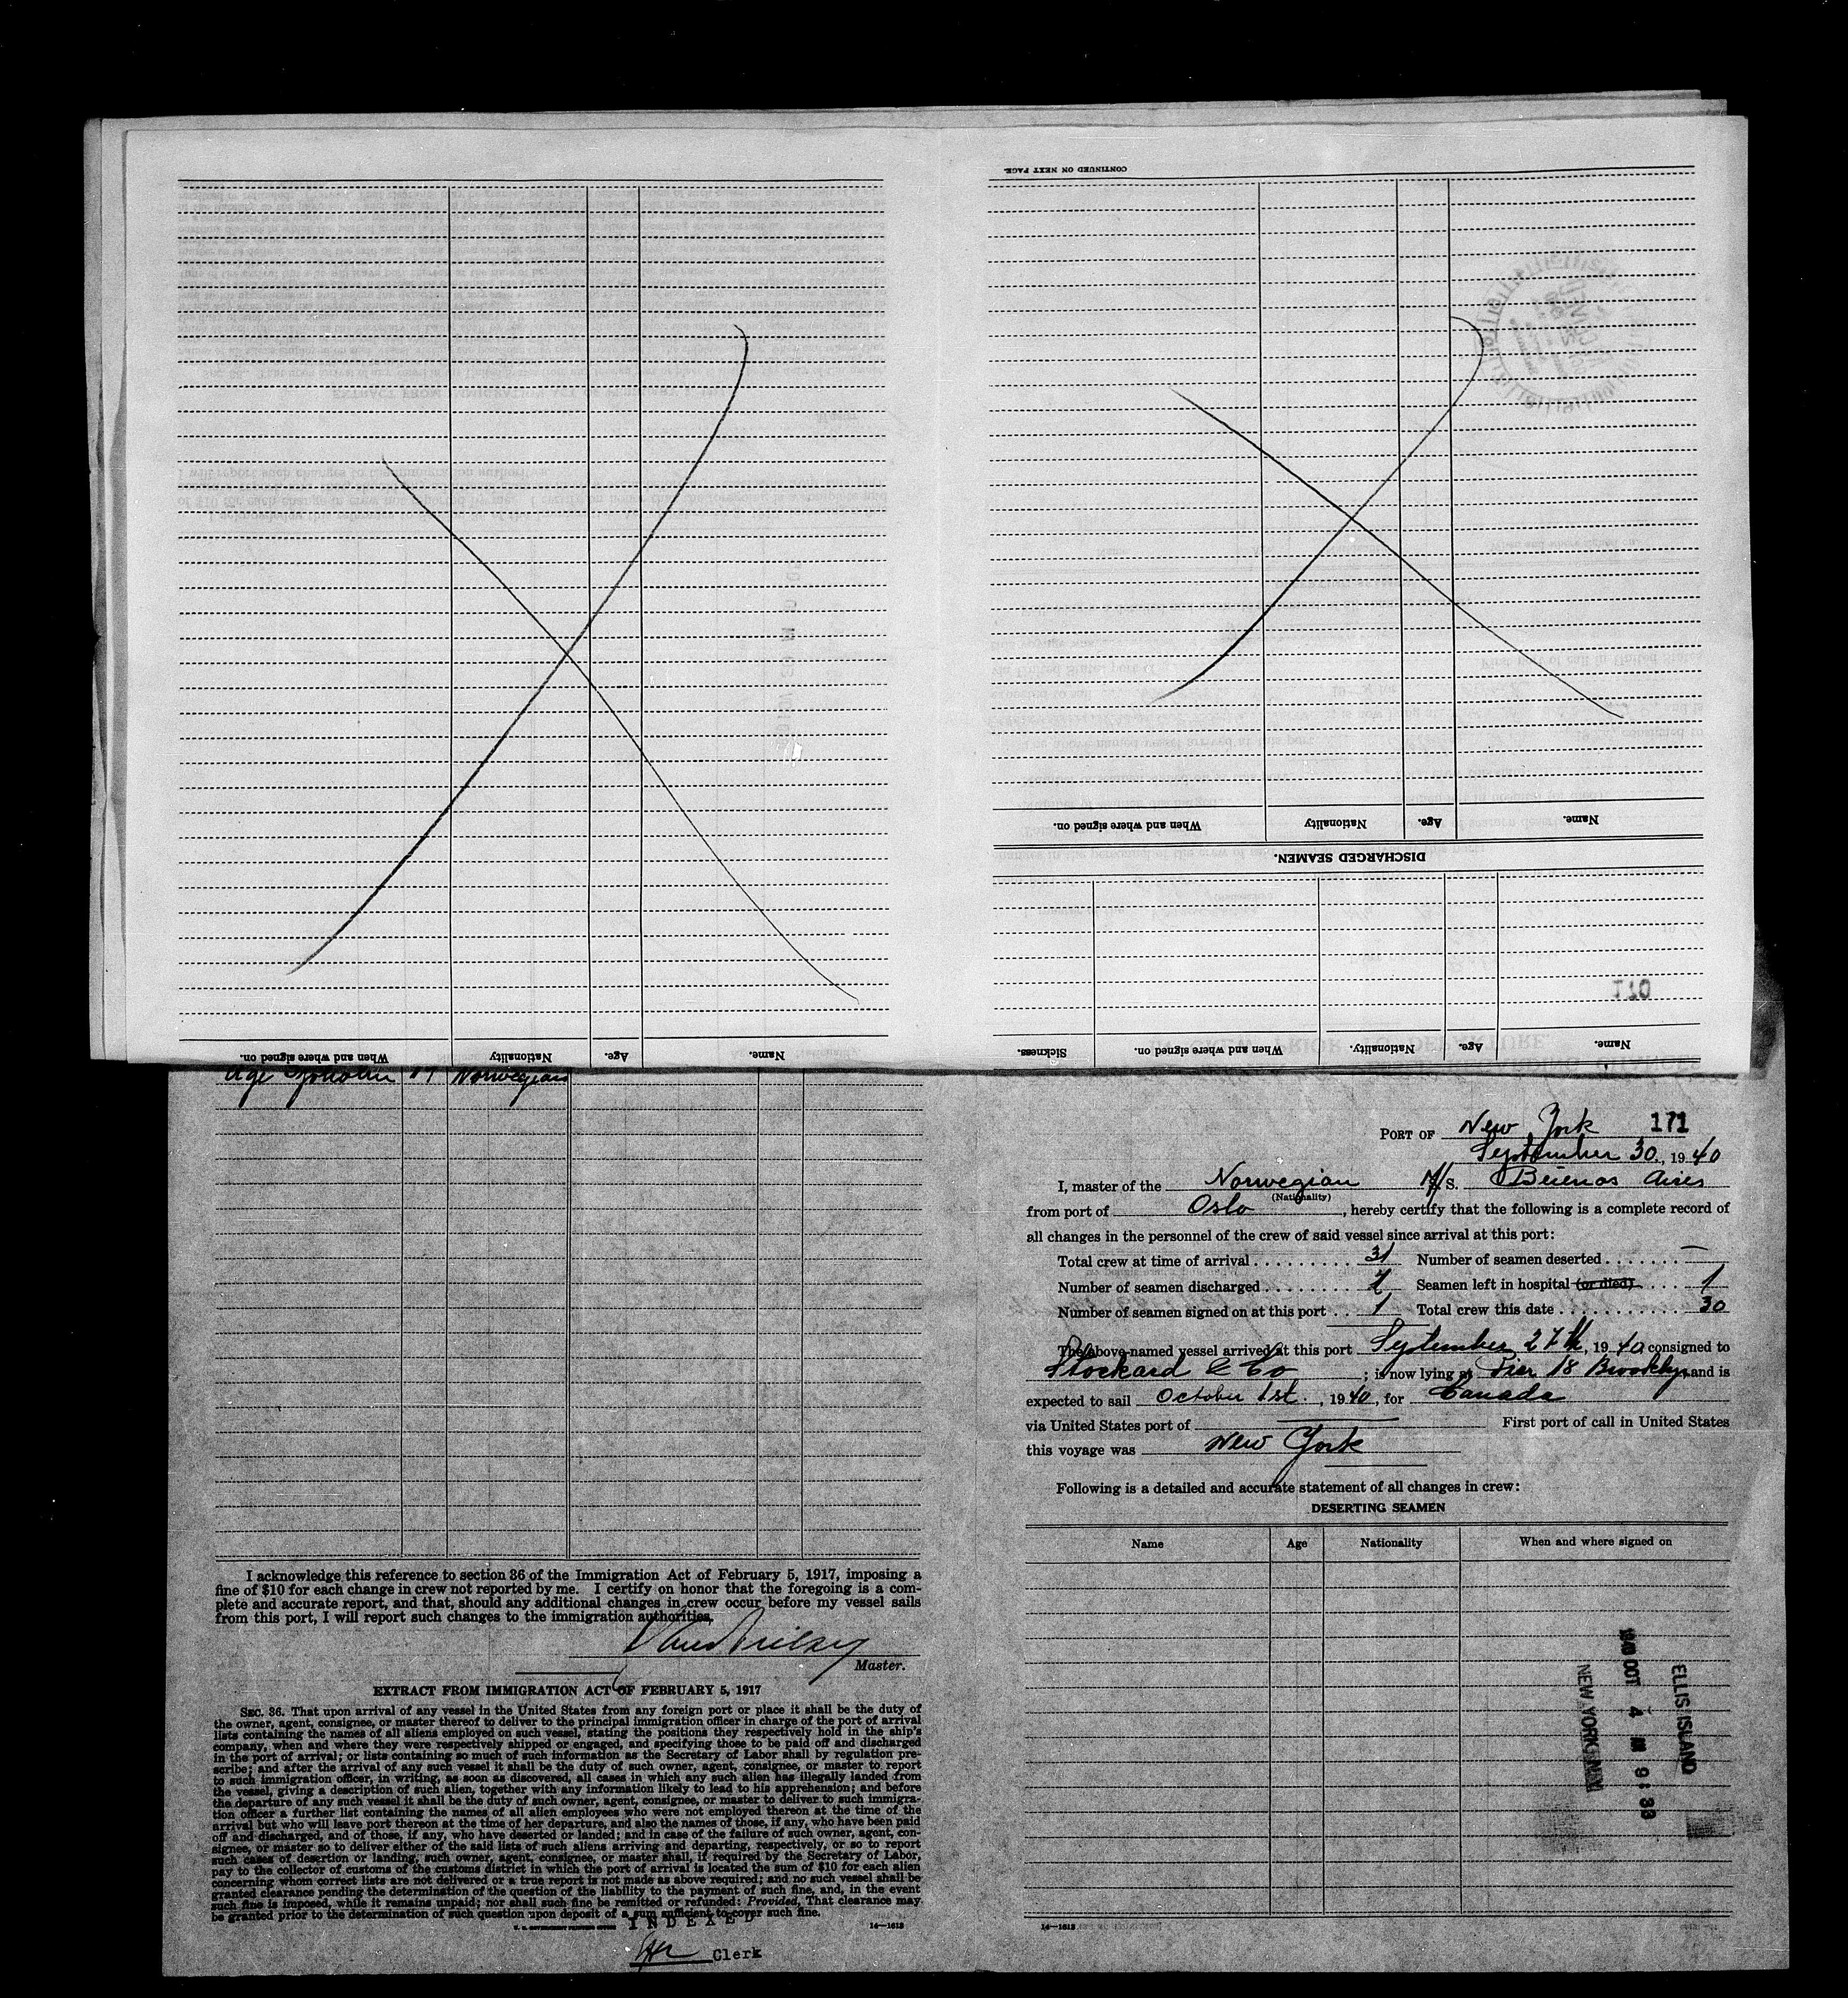 CONTINUED ON NEXT PAGE.
When and where signed on.
Nationality
Age.
Name.
DISCHARGED SEAMEN.
170
Sickness.
When and where signed on.
Nationality.
Age.
Name.
When and where signed on.
Nationality
Age.
Name.
Norwegian
I acknowledge this reference to section 36 of the Immigration Act of February 5, 1917, imposing a
fine of $10 for each change in crew not reported by me. I certify on honor that the foregoing is a com-
plete and accurate report, and that, should any additional changes in crew occur before my vessel sails
from this port, I will report such changes to the immigration authorities.
Master.
EXTRACT FROM IMMIGRATION ACT OF FEBRUARY 5, 1917
SEC. 36. That upon arrival of any vessel in the United States from any foreign port or place it shall be the duty of
the owner, agent, consignee, or master thereof to deliver to the principal immigration officer in charge of the port of arrival
lists containing the names of all aliens employed on such vessel, stating the positions they respectively hold in the ship's
company, when and where they were respectively shipped or engaged, and specifying those to be paid off and discharged
in the port of arrival; or lists containing so much of such information as the Secretary of Labor shall by regulation pre-
scribe; and after the arrival of any such vessel it shall be the duty of such owner, agent, consignee, or master to report
to such immigration officer, in writing, as soon as discovered, all cases in which any such alien has illegally landed from
the vessel, giving a description of such alien, together with any information likely to lead to his apprehension; and before
the departure of any such vessel it shall be the duty of such owner, agent, consignee, or master to deliver to such immigra-
tion officer a further list containing the names of all alien employees who were not employed thereon at the time of the
arrival but who will leave port thereon at the time of her departure, and also the names of those, if any, who have been paid
off and discharged, and of those, if any, who have deserted or landed; and in case of the failure of such owner, agent, con-
signee, or master so to deliver either of the said lists of such aliens arriving and departing, respectively, or so to report
such cases of desertion or landing, such owner, agent, consignee, or master shall, if required by the Secretary of Labor,
pay to the collector of customs of the customs district in which the port of arrival is located the sum of $10 for each alien
concerning whom correct lists are not delivered or a true report is not made as above required; and no such vessel shall be
granted clearance pending the determination of the question of the liability to the payment of such fine, and, in the event
such fine is imposed, while it remains unpaid; nor shall such fine be remitted or refunded: Provided, That clearance may
be granted prior to the determination of such question upon deposit of a sum sufficient to cover such fine.
U. S. GOVERNMENT PRINTING OFFICE
14—1613
INDEXED
Clerk
PORT OF New York 171
September 30, 1940
I, master of the Norwegian M/S. Buenos Aires
(Nationality)
from port of Oslo, hereby certify that the following is a complete record of
all changes in the personnel of the crew of said vessel since arrival at this port:
Total crew at time of arrival 31 Number of seamen deserted —
Number of seamen discharged Seamen left in hospital (or died) 1
Number of seamen signed on at this port 1 Total crew this date 30
The above-named vessel arrived at this port September 27th, 1940 consigned to
Stockard & Co; is now lying at Pier 18 Brooklyn, and is
expected to sail October 1st, 1940, for Canada
via United States port of First port of call in United States
this voyage was New York
Following is a detailed and accurate statement of all changes in crew:
DESERTING SEAMEN
Name Age Nationality When and where signed on
ELLIS ISLAND
1940 OCT 4 AM 9:33
14—1613